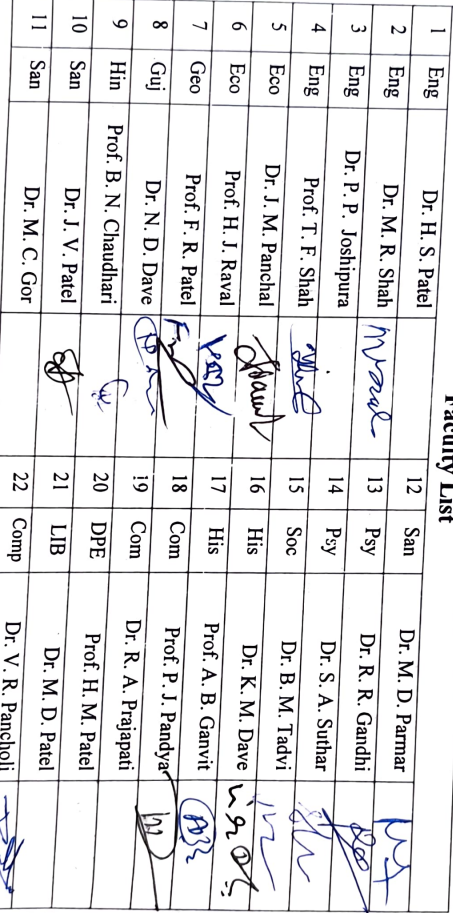 Faculty List
1 Eng Dr. H. S. Patel 12 San Dr. M. D. Parmar
2 Eng Dr. M. R. Shah 13 Psy Dr. R. R. Gandhi
3 Eng Dr. P. P. Joshipura 14 Psy Dr. S. A. Suthar
4 Eng Prof. T. F. Shah 15 Soc Dr. B. M. Tadvi
5 Eco Dr. J. M. Panchal 16 His Dr. K. M. Dave
6 Eco Prof. H. J. Raval 17 His Prof. A. B. Ganvit
7 Geo Prof. F. R. Patel 18 Com Prof. P. J. Pandya
8 Guj Dr. N. D. Dave 19 Com Dr. R. A. Prajapati
9 Hin Prof. B. N. Chaudhari 20 DPE Prof. H. M. Patel
10 San Dr. J. V. Patel 21 LIB Dr. M. D. Patel
11 San Dr. M. C. Gor 22 Comp Dr. V. R. Pancholi